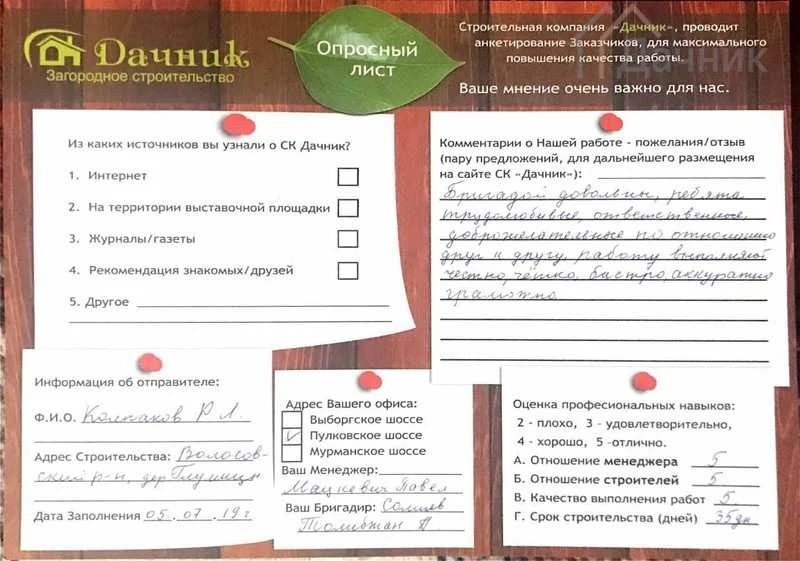 Дачник
Загородное строительство
Опросный
лист
Строительная компания «Дачник», проводит
анкетирование Заказчиков, для максимального
повышения качества работы.
Ваше мнение очень важно для нас.
Дачник
Из каких источников вы узнали о СК Дачник?
1. Интернет
2. На территории выставочной площадки
3. Журналы/газеты
4. Рекомендация знакомых/друзей
5. Другое
Комментарии о Нашей работе - пожелания/отзыв
(пару предложений, для дальнейшего размещения
на сайте СК «Дачник»):
Бригадой довольны, ребята
трудолюбивые, ответственные,
доброжелательные по отношению
друг к другу, работу выполняют
честно, чётко, быстро, аккуратно
грамотно.
Информация об отправителе:
Ф.И.О. Колпаков Р Л.
Адрес Строительства: Волосов-
ский р-н, дер Глумицы
Дата Заполнения 05.07.19г
Адрес Вашего офиса:
Выборгское шоссе
Пулковское шоссе
Мурманское шоссе
Ваш Менеджер:
Мацкевич Павел
Ваш Бригадир: Солиев
Толибжан А.
Оценка професиональных навыков:
2 - плохо, 3 - удовлетворительно,
4 - хорошо, 5 -отлично.
А. Отношение менеджера 5
Б. Отношение строителей 5
В. Качество выполнения работ 5
Г. Срок строительства (дней) 35дн